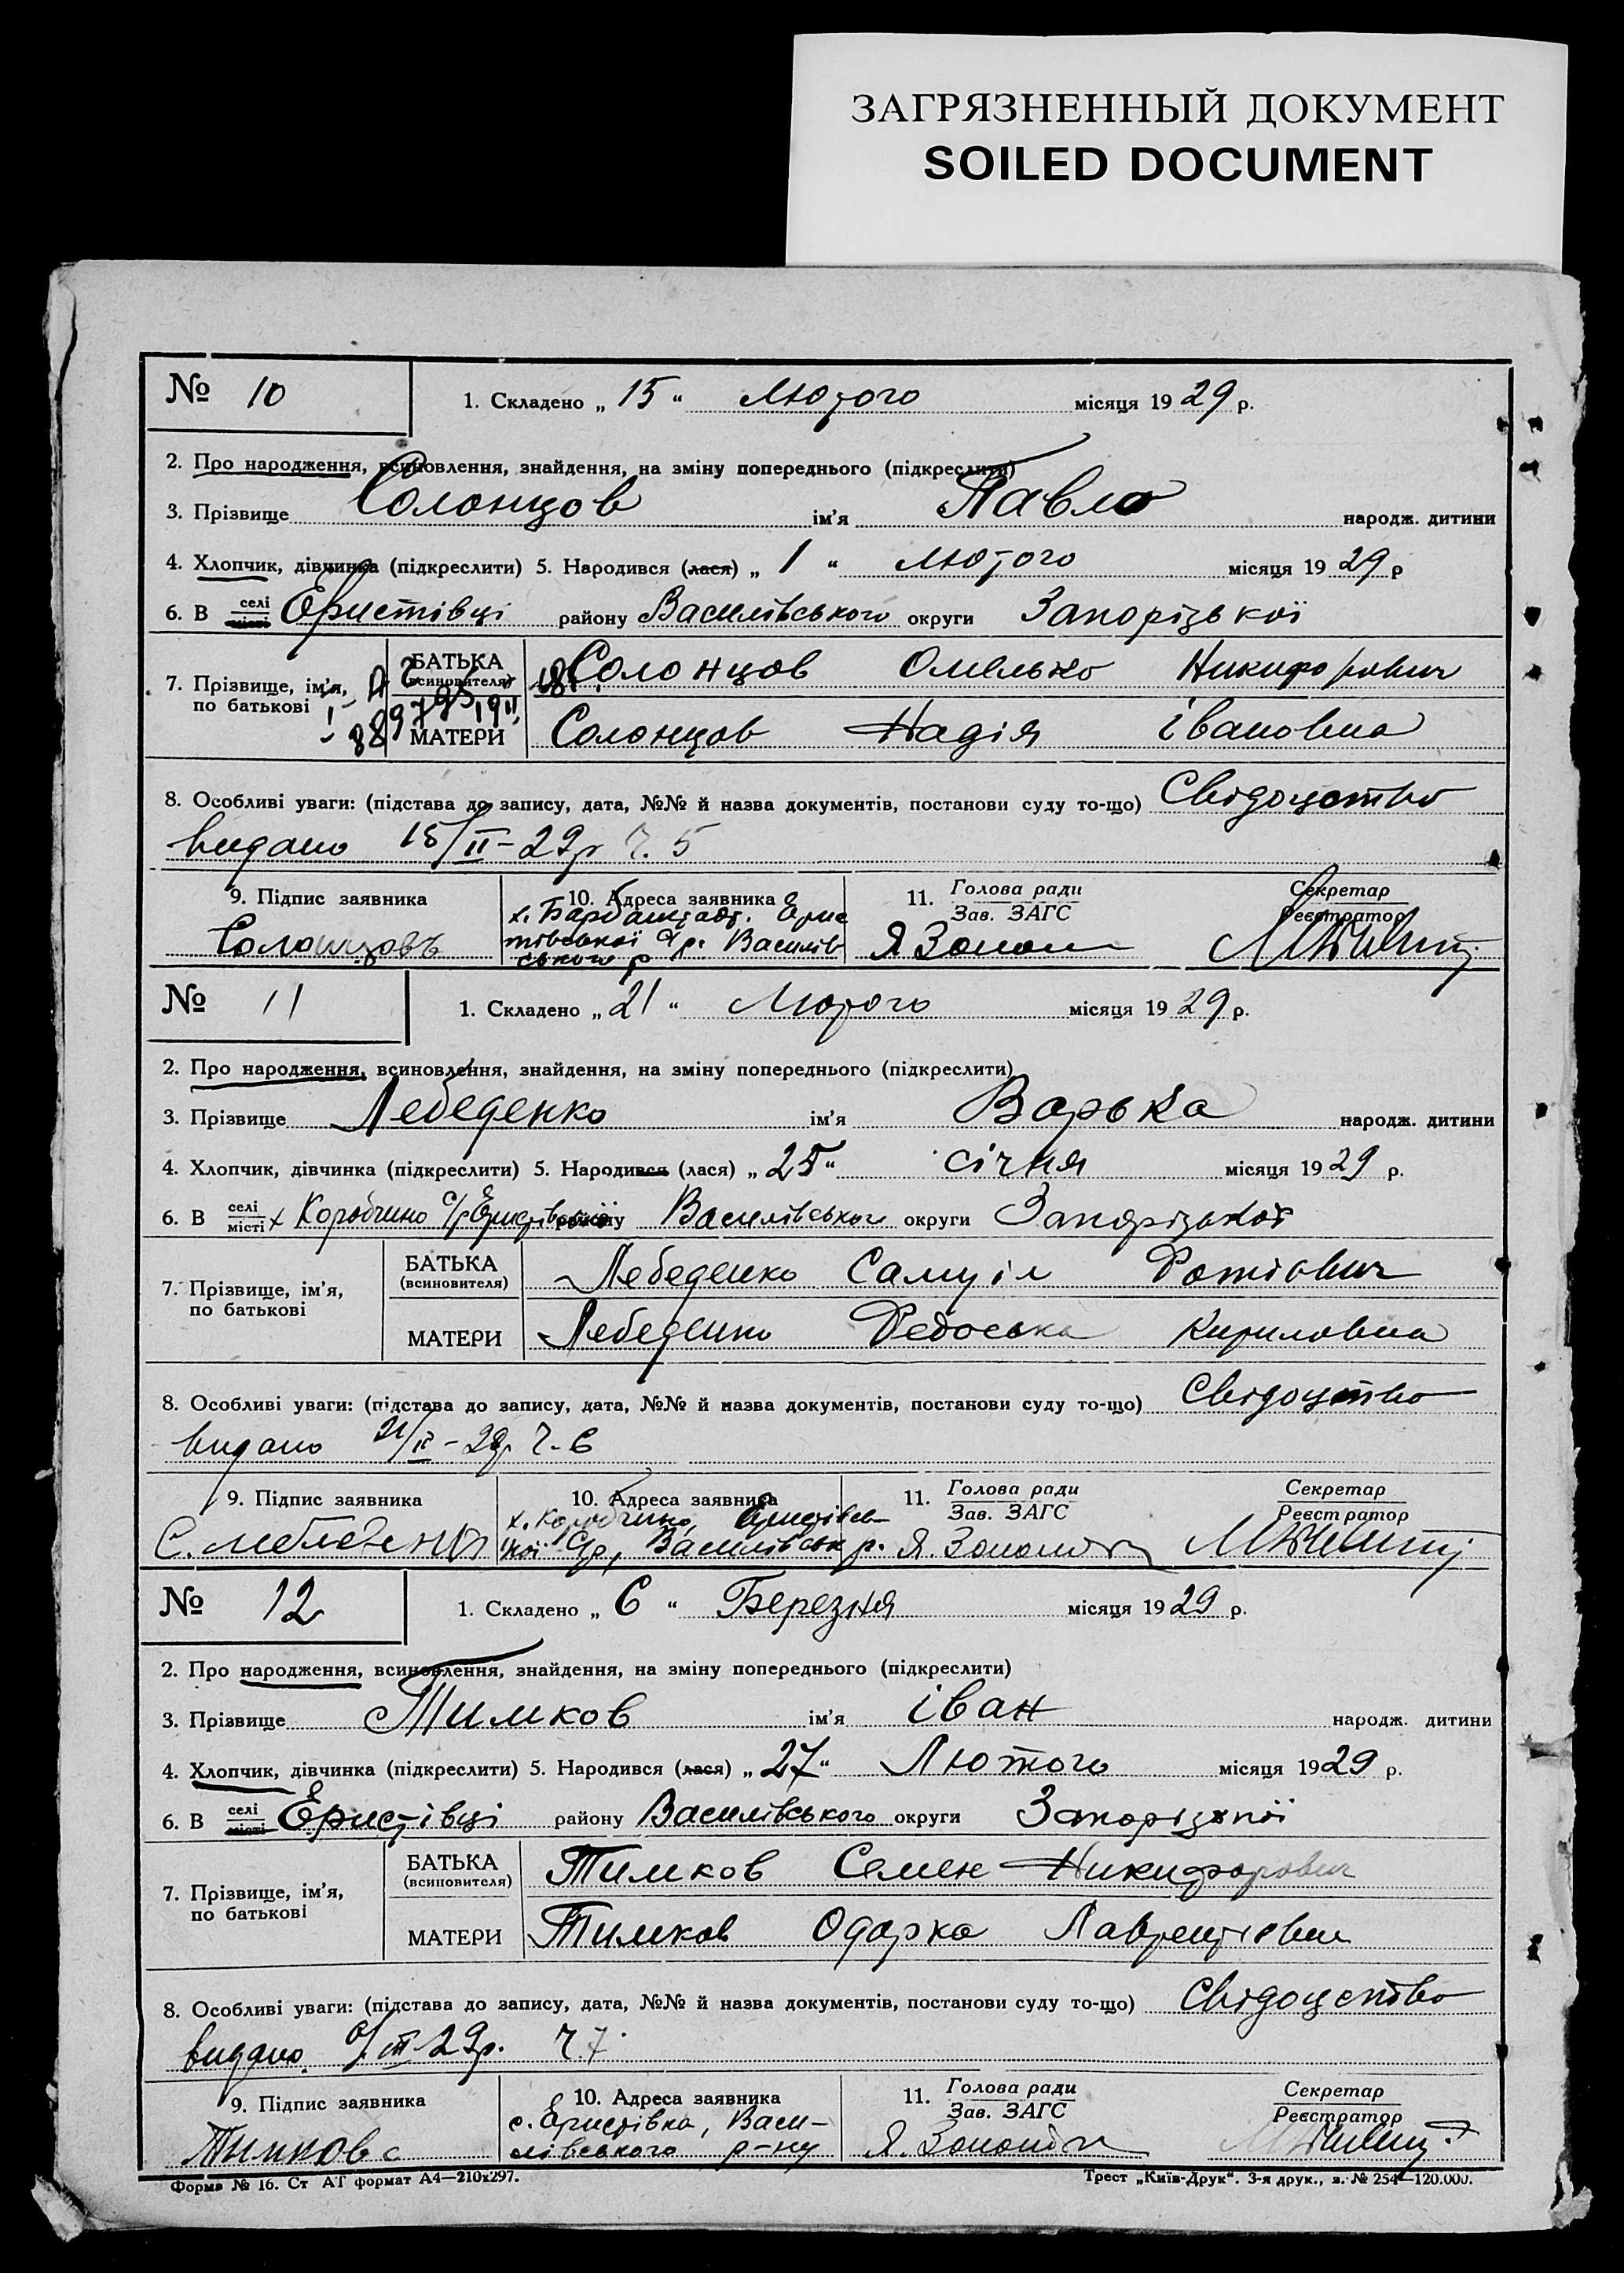 ЗАГРЯЗНЕННЫЙ ДОКУМЕНТ
SOILED DOCUMENT
№ 10
1. Складено „ 15 “ Лютого місяця 1929 р.
2. Про народження, всиновлення, знайдення, на зміну попереднього (підкреслити)
3. Прізвище Солонцов ім’я Павло народж. дитини
4. Хлопчик, дівчинка (підкреслити) 5. Народився (лася) „ 1 “ лютого місяця 1929 р
6. В селі місті Єристівці району Василівського округи Запорізької
7. Прізвище, ім’я, по батькові
БАТЬКА (всиновителя) Солонцов Омелько Никифорович
МАТЕРИ Солонцов Надія івановна
8. Особливі уваги: (підстава до запису, дата, №№ й назва документів, постанови суду то-що) Свідоцтво
видано 15/II-29р Ч. 5
9. Підпис заявника
10. Адреса заявника
11. Голова ради
Зав. ЗАГС
Секретар
Реєстратор
Солонцовъ
тівської С/р. Василів
ського р
№ 11
1. Складено „ 21 “ Лютого місяця 1929 р.
2. Про народження, всиновлення, знайдення, на зміну попереднього (підкреслити)
3. Прізвище Лебеденко ім’я Варька народж. дитини
4. Хлопчик, дівчинка (підкреслити) 5. Народився (лася) „ 25 “ січня місяця 1929 р.
6. В селі місті х Коробчино с/р Єристівської району Василівського округи Запорізької
7. Прізвище, ім’я, по батькові
БАТЬКА (всиновителя) Лебеденко Самуіл Фотіович
МАТЕРИ Лебеденко Федоська Кириловна
8. Особливі уваги: (підстава до запису, дата, №№ й назва документів, постанови суду то-що) Свідоцтво
видано 21/II-29р Ч. 6
9. Підпис заявника
10. Адреса заявника
11. Голова ради
Зав. ЗАГС
Секретар
Реєстратор
х. Коробчино, Єристівсь-
кої С/р, Василівськ р.
№ 12
1. Складено „ 6 “ Березня місяця 1929 р.
2. Про народження, всиновлення, знайдення, на зміну попереднього (підкреслити)
3. Прізвище Тимков ім’я іван народж. дитини
4. Хлопчик, дівчинка (підкреслити) 5. Народився (лася) „ 27 “ Лютого місяця 1929 р.
6. В селі місті Єристівці району Василівського округи Запорізької
7. Прізвище, ім’я, по батькові
БАТЬКА (всиновителя) Тимков Семен Никифорович
МАТЕРИ Тимков Одарка Лаврентіовна
8. Особливі уваги: (підстава до запису, дата, №№ й назва документів, постанови суду то-що) Свідоцство
видано 6/III-29р. Ч 7.
9. Підпис заявника
10. Адреса заявника
11. Голова ради
Зав. ЗАГС
Секретар
Реєстратор
с. Єристівка, Васи-
лівського р-ну
Тимков
Форма № 16. Ст АТ формат А4—210х297.
Трест „Київ-Друк“. 3-я друк., з. № 254—120.000.